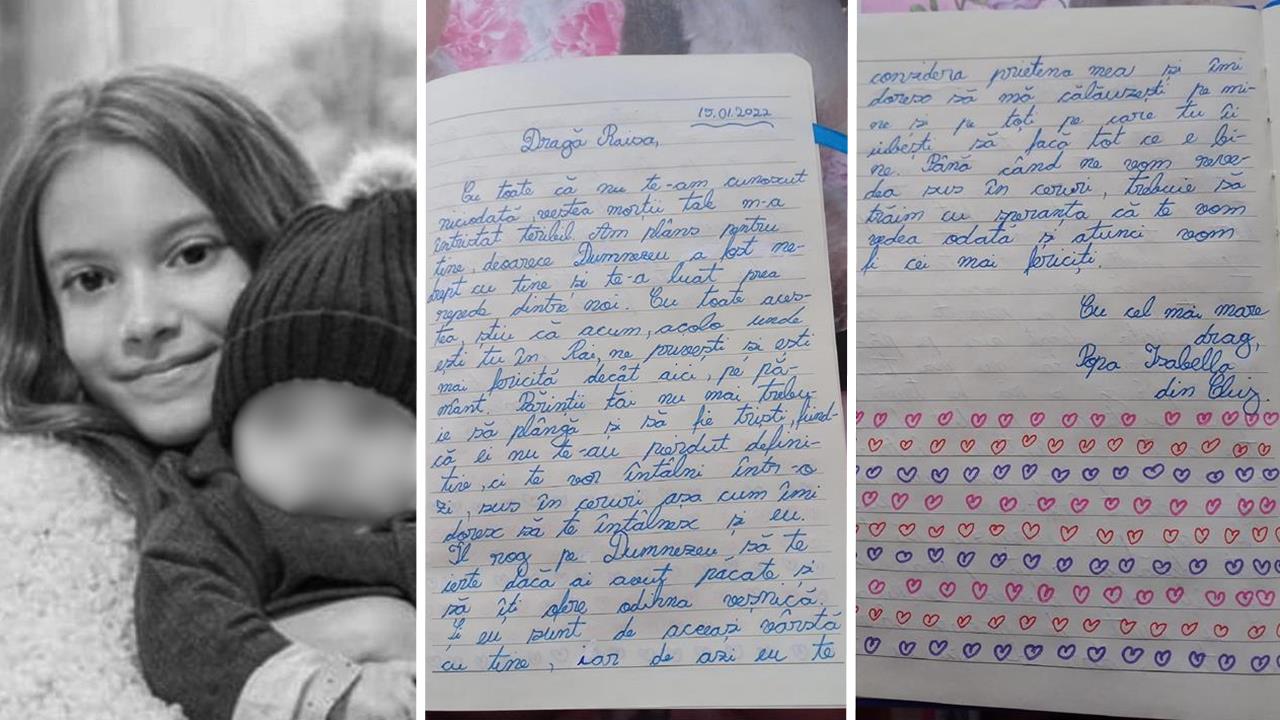 15.01.2022
Dragă Raisa,
Cu toate că nu te-am cunoscut
niciodată, vestea morții tale m-a
întristat teribil. Am plâns pentru
tine, deoarece Dumnezeu a fost ne-
drept cu tine și te-a luat prea
repede dintre noi. Cu toate aces-
tea, știu că acum, acolo unde
ești tu în Rai, ne privești și ești
mai fericită decât aici, pe pă-
mânt. Părinții tăi nu mai trebu-
ie să plângă și să fie triști, fiind-
că ei nu te-au pierdut defini-
tive, ci te vor întâlni într-o
zi, sus în ceruri, așa cum îmi
doresc să te întâlnesc și eu.
Îl rog pe Dumnezeu să te
ierte dacă ai avut păcate și
să îți ofere odihna veșnică.
Și eu sunt de aceeași vârstă
cu tine, iar de azi eu te
considera prietena mea și îmi
doresc să mă călăuzești pe mi-
ne și pe toți pe care tu îi
iubești să facă tot ce e bi-
ne. Până când ne vom reve-
dea sus în ceruri, trebuie să
trăim cu speranța că te vom
vedea odată și atunci vom
fi cei mai fericiți.
Cu cel mai mare
drag,
Popa Isabella
din Cluj.